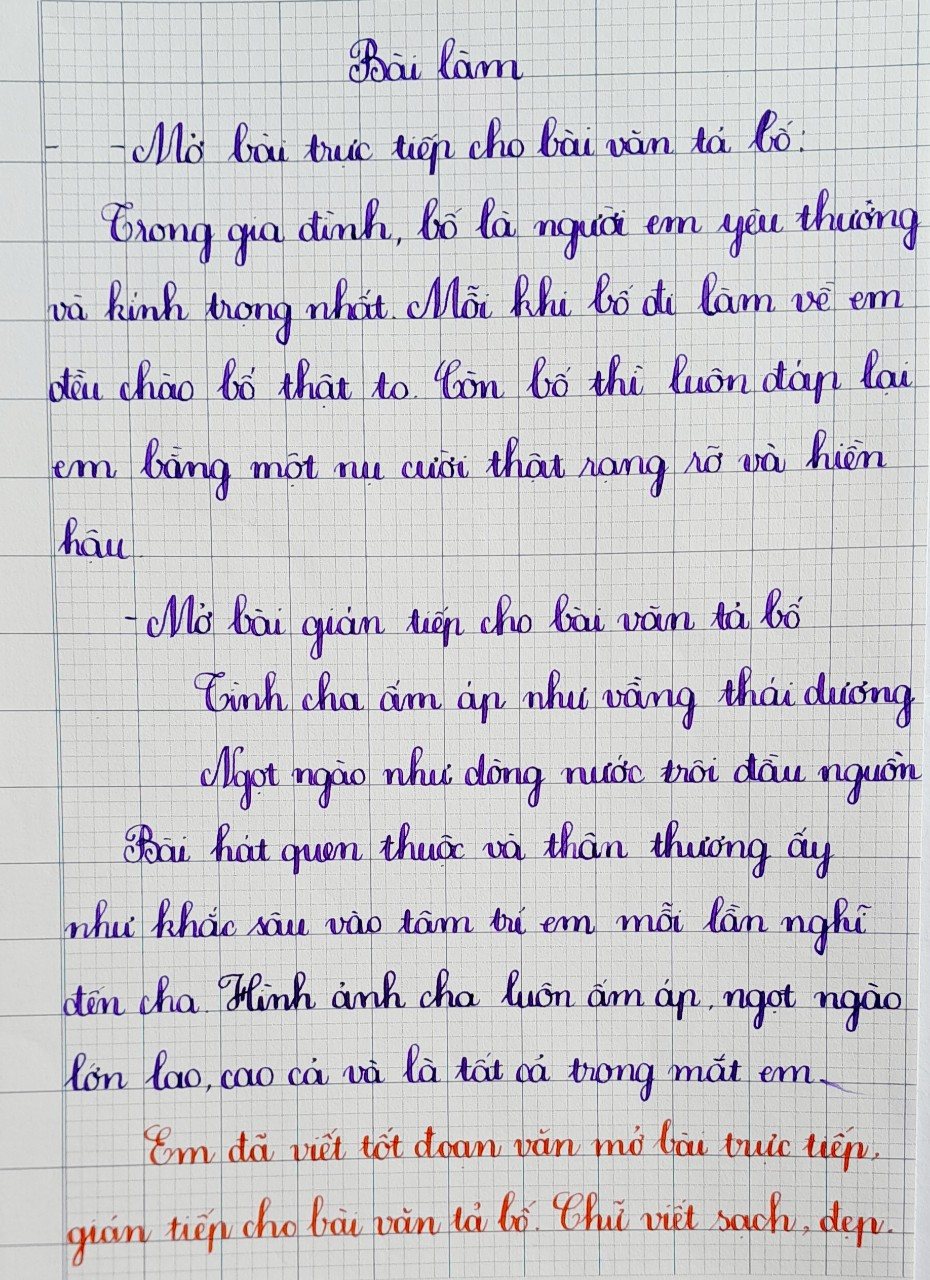 Bài làm
- Mở bài trực tiếp cho bài văn tả bố:
Trong gia đình, bố là người em yêu thương
và kính trọng nhất. Mỗi khi bố đi làm về em
đều chào bố thật to. Còn bố thì luôn đáp lại
em bằng một nụ cười thật rạng rỡ và hiền
hậu.
- Mở bài gián tiếp cho bài văn tả bố
Tình cha ấm áp như vầng thái dương
Ngọt ngào như dòng nước trôi đầu nguồn
Bài hát quen thuộc và thân thương ấy
như khắc sâu vào tâm trí em mỗi lần nghĩ
đến cha. Hình ảnh cha luôn ấm áp, ngọt ngào
lớn lao, cao cả và là tất cả trong mắt em.
Em đã viết tốt đoạn văn mở bài trực tiếp,
gián tiếp cho bài văn tả bố. Chữ viết sạch, đẹp.